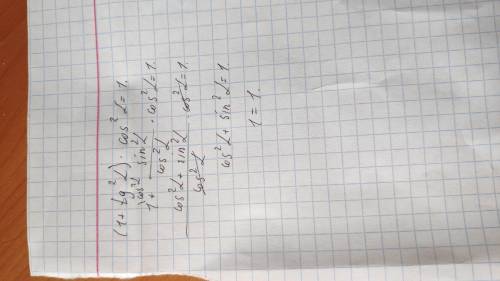 (1 + tg² α) · cos² α = 1.
1 + sin² α / cos² α · cos² α = 1.
cos² α + sin² α / cos² α · cos² α = 1.
cos² α + sin² α = 1.
1 = 1.